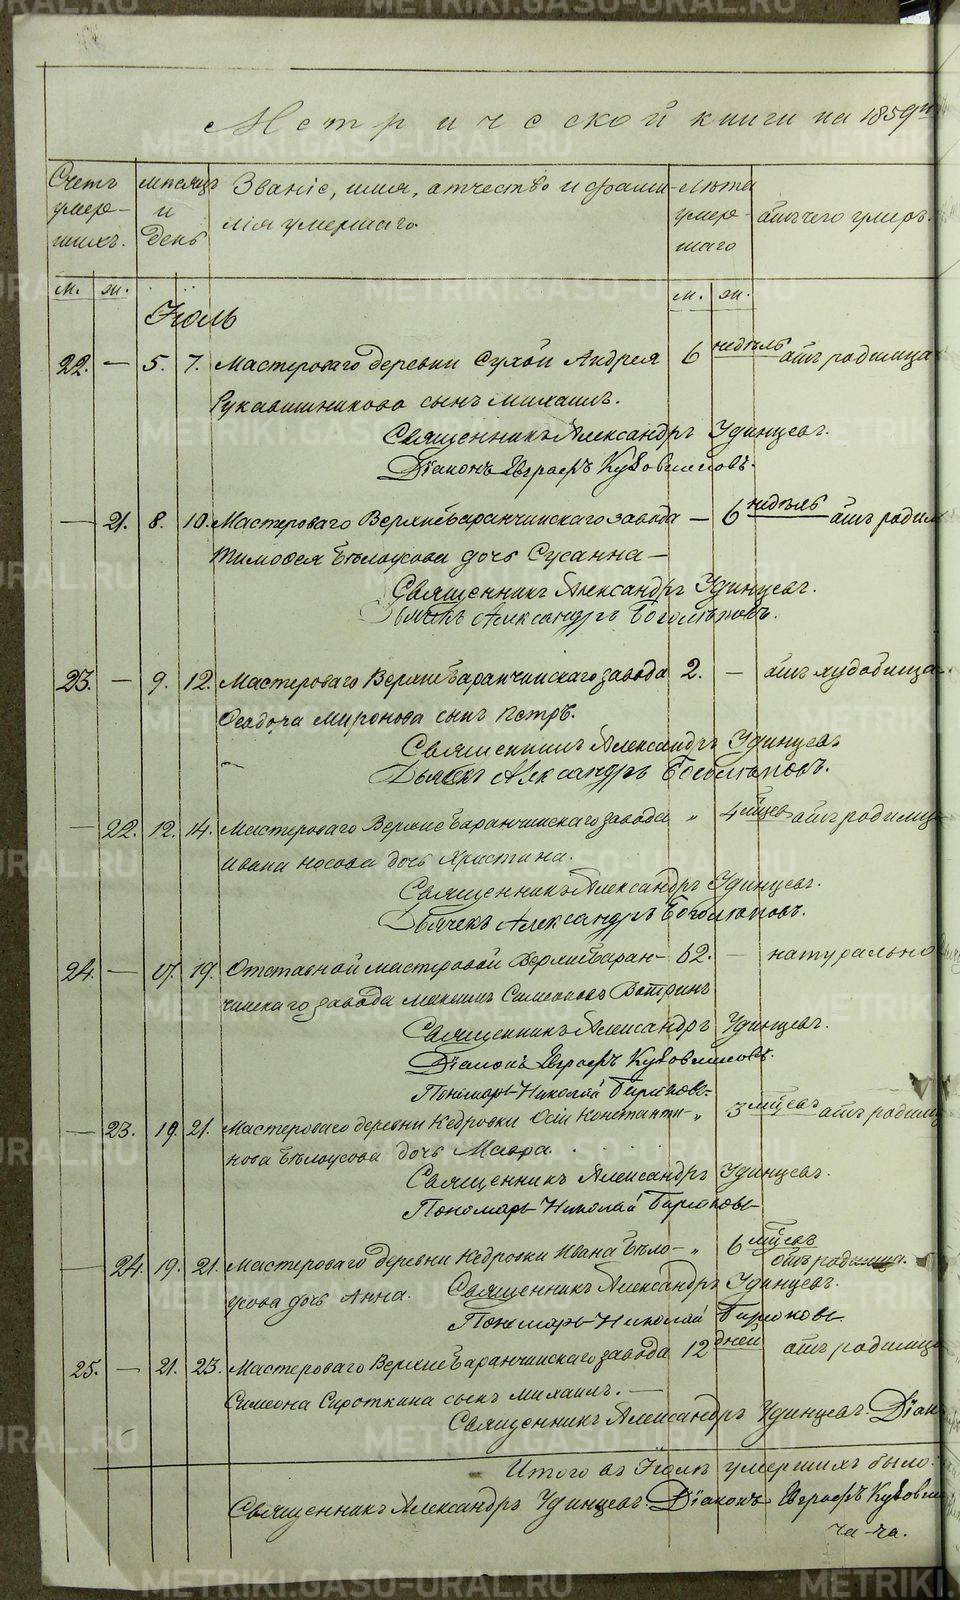 Метрической книги на 1859й
Счетъ умер- шихъ. мѣсяцъ и день Званіе, имя, отчество и фами- лія умершаго. Лѣта умер- шаго отъ чего умеръ.
м. ж. м. ж.
Іюль
22. — 5. 7. Мастероваго деревни Сухой Андрея 6 недѣль отъ родимца
Рукавишникова сынъ Михаилъ.
Священникъ Александръ Удинцевъ.
Діаконъ Евграфъ
— 21. 8. 10. Мастероваго Верхнебаранчинскаго завода — 6 недѣль отъ родим
Тимофея Бѣлоусова дочь Сусанна —
Священникъ Александръ Удинцевъ.
Дьячекъ Александръ Боголѣповъ.
23. — 9. 12. Мастероваго Верхнебаранчинскаго завода 2. — отъ худобища
Ѳеодора Миронова сынъ Петръ.
Священникъ Александръ Удинцевъ.
Дьячекъ Александръ Боголѣповъ.
— 22. 12. 14. Мастероваго Верхнебаранчинскаго завода " 4 мѣсец отъ родимц
Ивана Носова дочь Христина.
Священникъ Александръ Удинцевъ.
Дьячекъ Александръ Боголѣповъ.
24. — 17. 19. Отставной мастеровой Верхнебаран- 62. — натурально
чинскаго завода Максимъ Симеоновъ Вотринъ
Священникъ Александръ Удинцевъ.
Діаконъ Евграфъ
Пономарь Николай Бирюковъ
— 23. 19. 21. Мастероваго деревни Кедровки Осіи Константи- " 3 мѣсец отъ родимц
нова Бѣлоусова дочь Мавра.
Священникъ Александръ Удинцевъ.
Пономарь Николай Бирюковъ
— 24. 19. 21. Мастероваго деревни Кедровки Ивана Бѣло- " 6 мѣсец отъ родимца.
усова дочь Анна. Священникъ Александръ Удинцевъ.
Пономарь Николай Бирюковъ
25. — 21. 23. Мастероваго Верхнебаранчинскаго завода 12 дней отъ родимца
Симеона Сироткина сынъ Михаилъ. —
Священникъ Александръ Удинцевъ. Діак
Итого въ Іюлѣ умершихъ было:
Священникъ Александръ Удинцевъ. Діаконъ Евграфъ
ча-ча.
METRIKI.GASO-URAL.RU